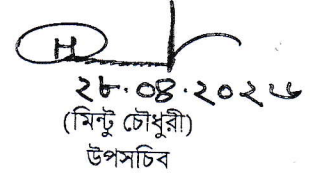 ২৮.০৪.২০২৬
(মিন্টু চৌধুরী)
উপসচিব